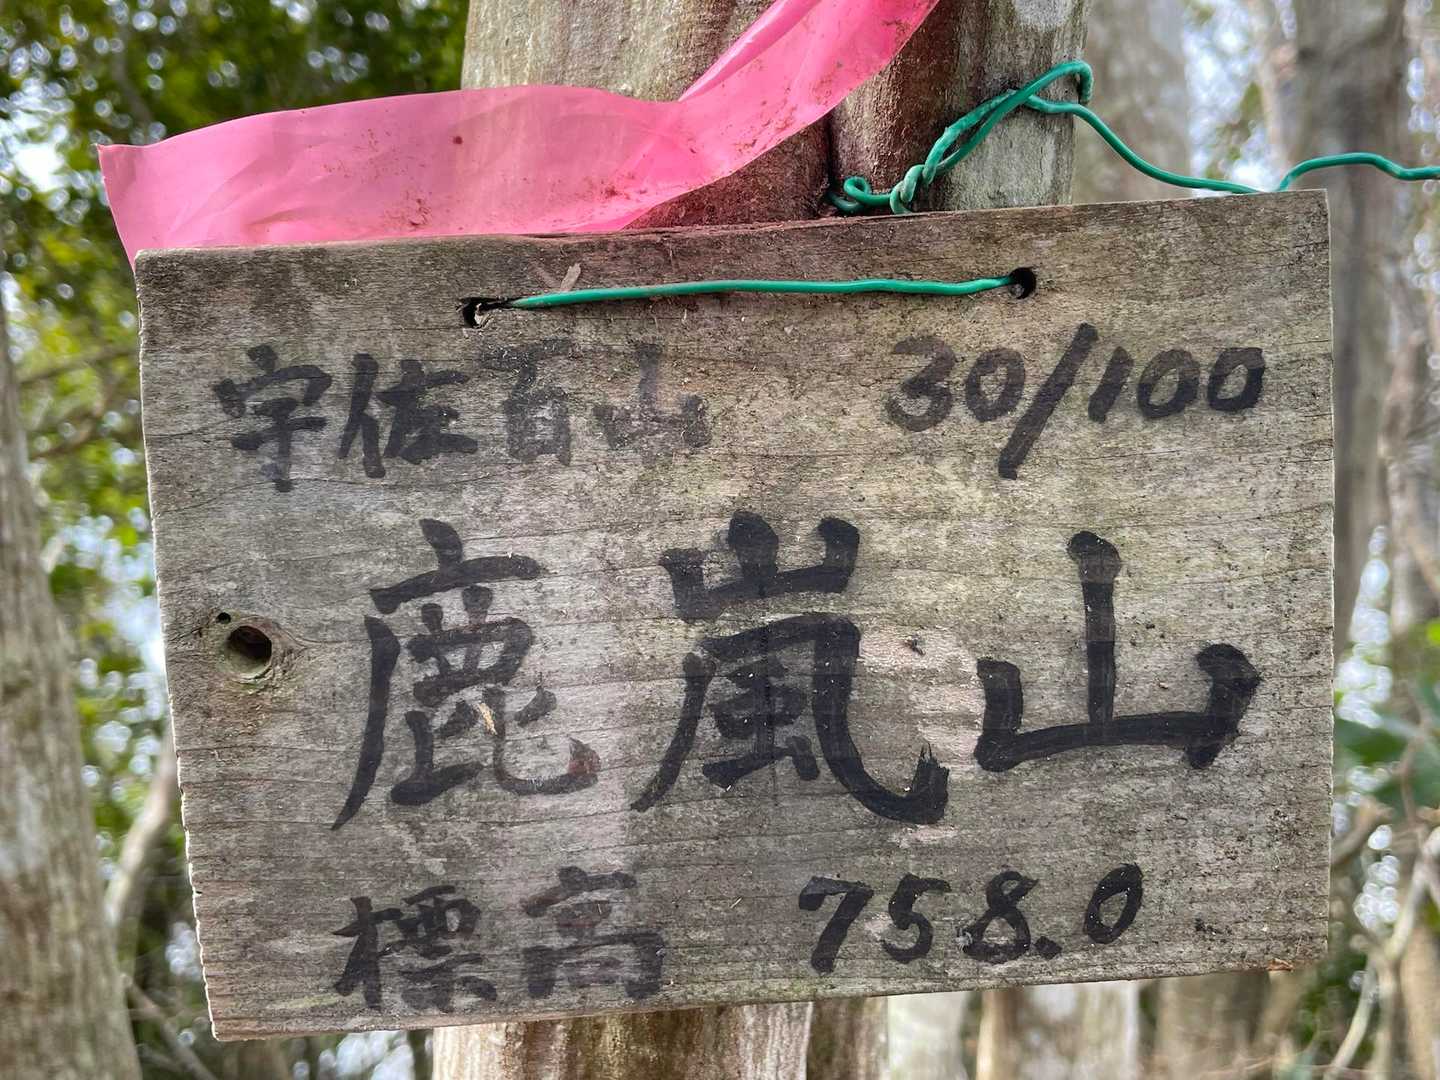 宇佐百山 30/100
鹿嵐山
標高 758.0